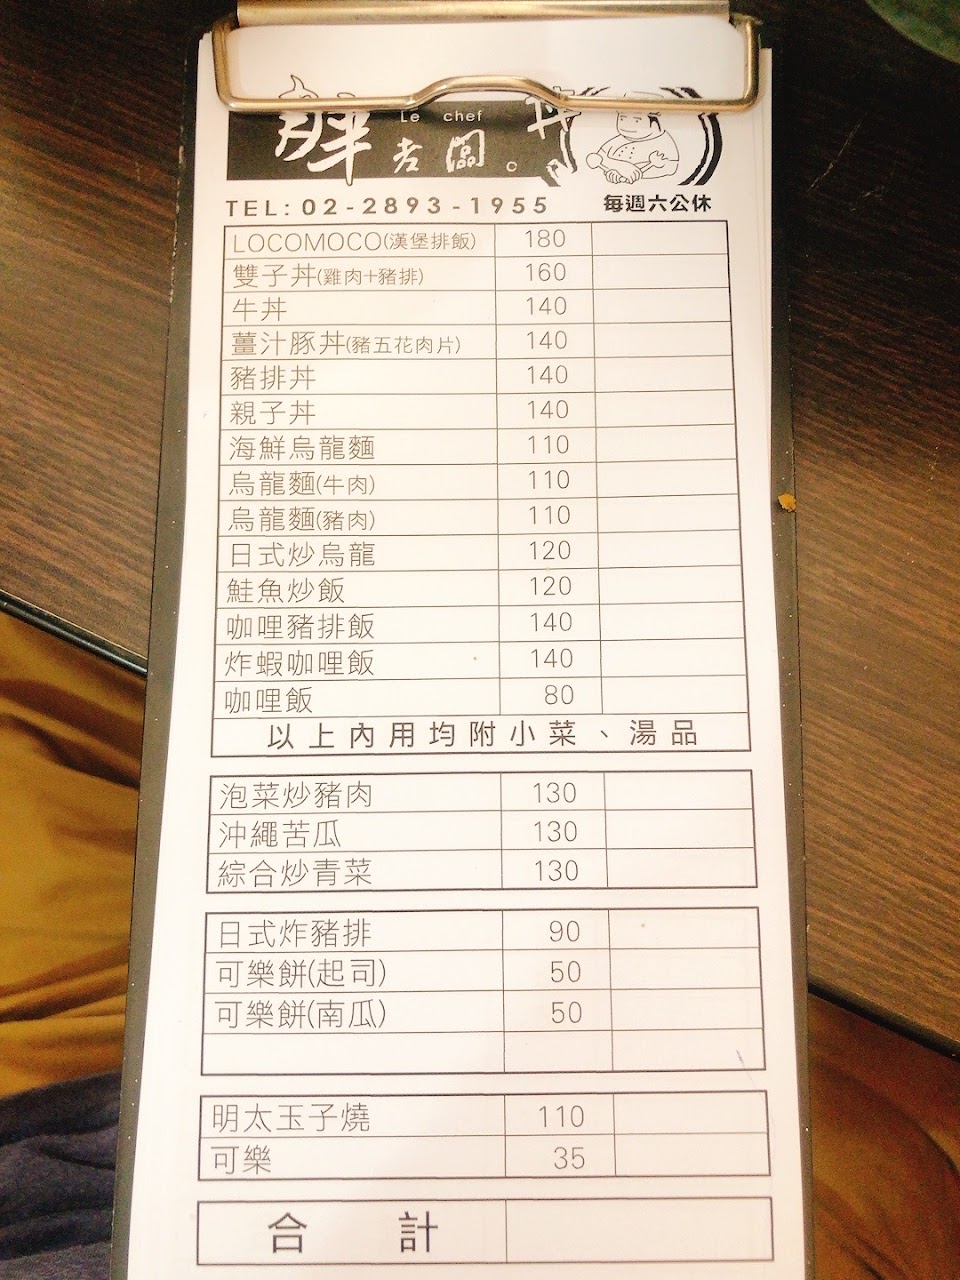 Le chef 丼
胖老闆。
TEL: 02-2893-1955 每週六公休
LOCOMOCO(漢堡排飯) 180
雙子丼(雞肉+豬排) 160
牛丼 140
薑汁豚丼(豬五花肉片) 140
豬排丼 140
親子丼 140
海鮮烏龍麵 110
烏龍麵(牛肉) 110
烏龍麵(豬肉) 110
日式炒烏龍 120
鮭魚炒飯 120
咖哩豬排飯 140
炸蝦咖哩飯 140
咖哩飯 80
以上內用均附小菜、湯品
泡菜炒豬肉 130
沖繩苦瓜 130
綜合炒青菜 130
日式炸豬排 90
可樂餅(起司) 50
可樂餅(南瓜) 50
明太玉子燒 110
可樂 35
合計